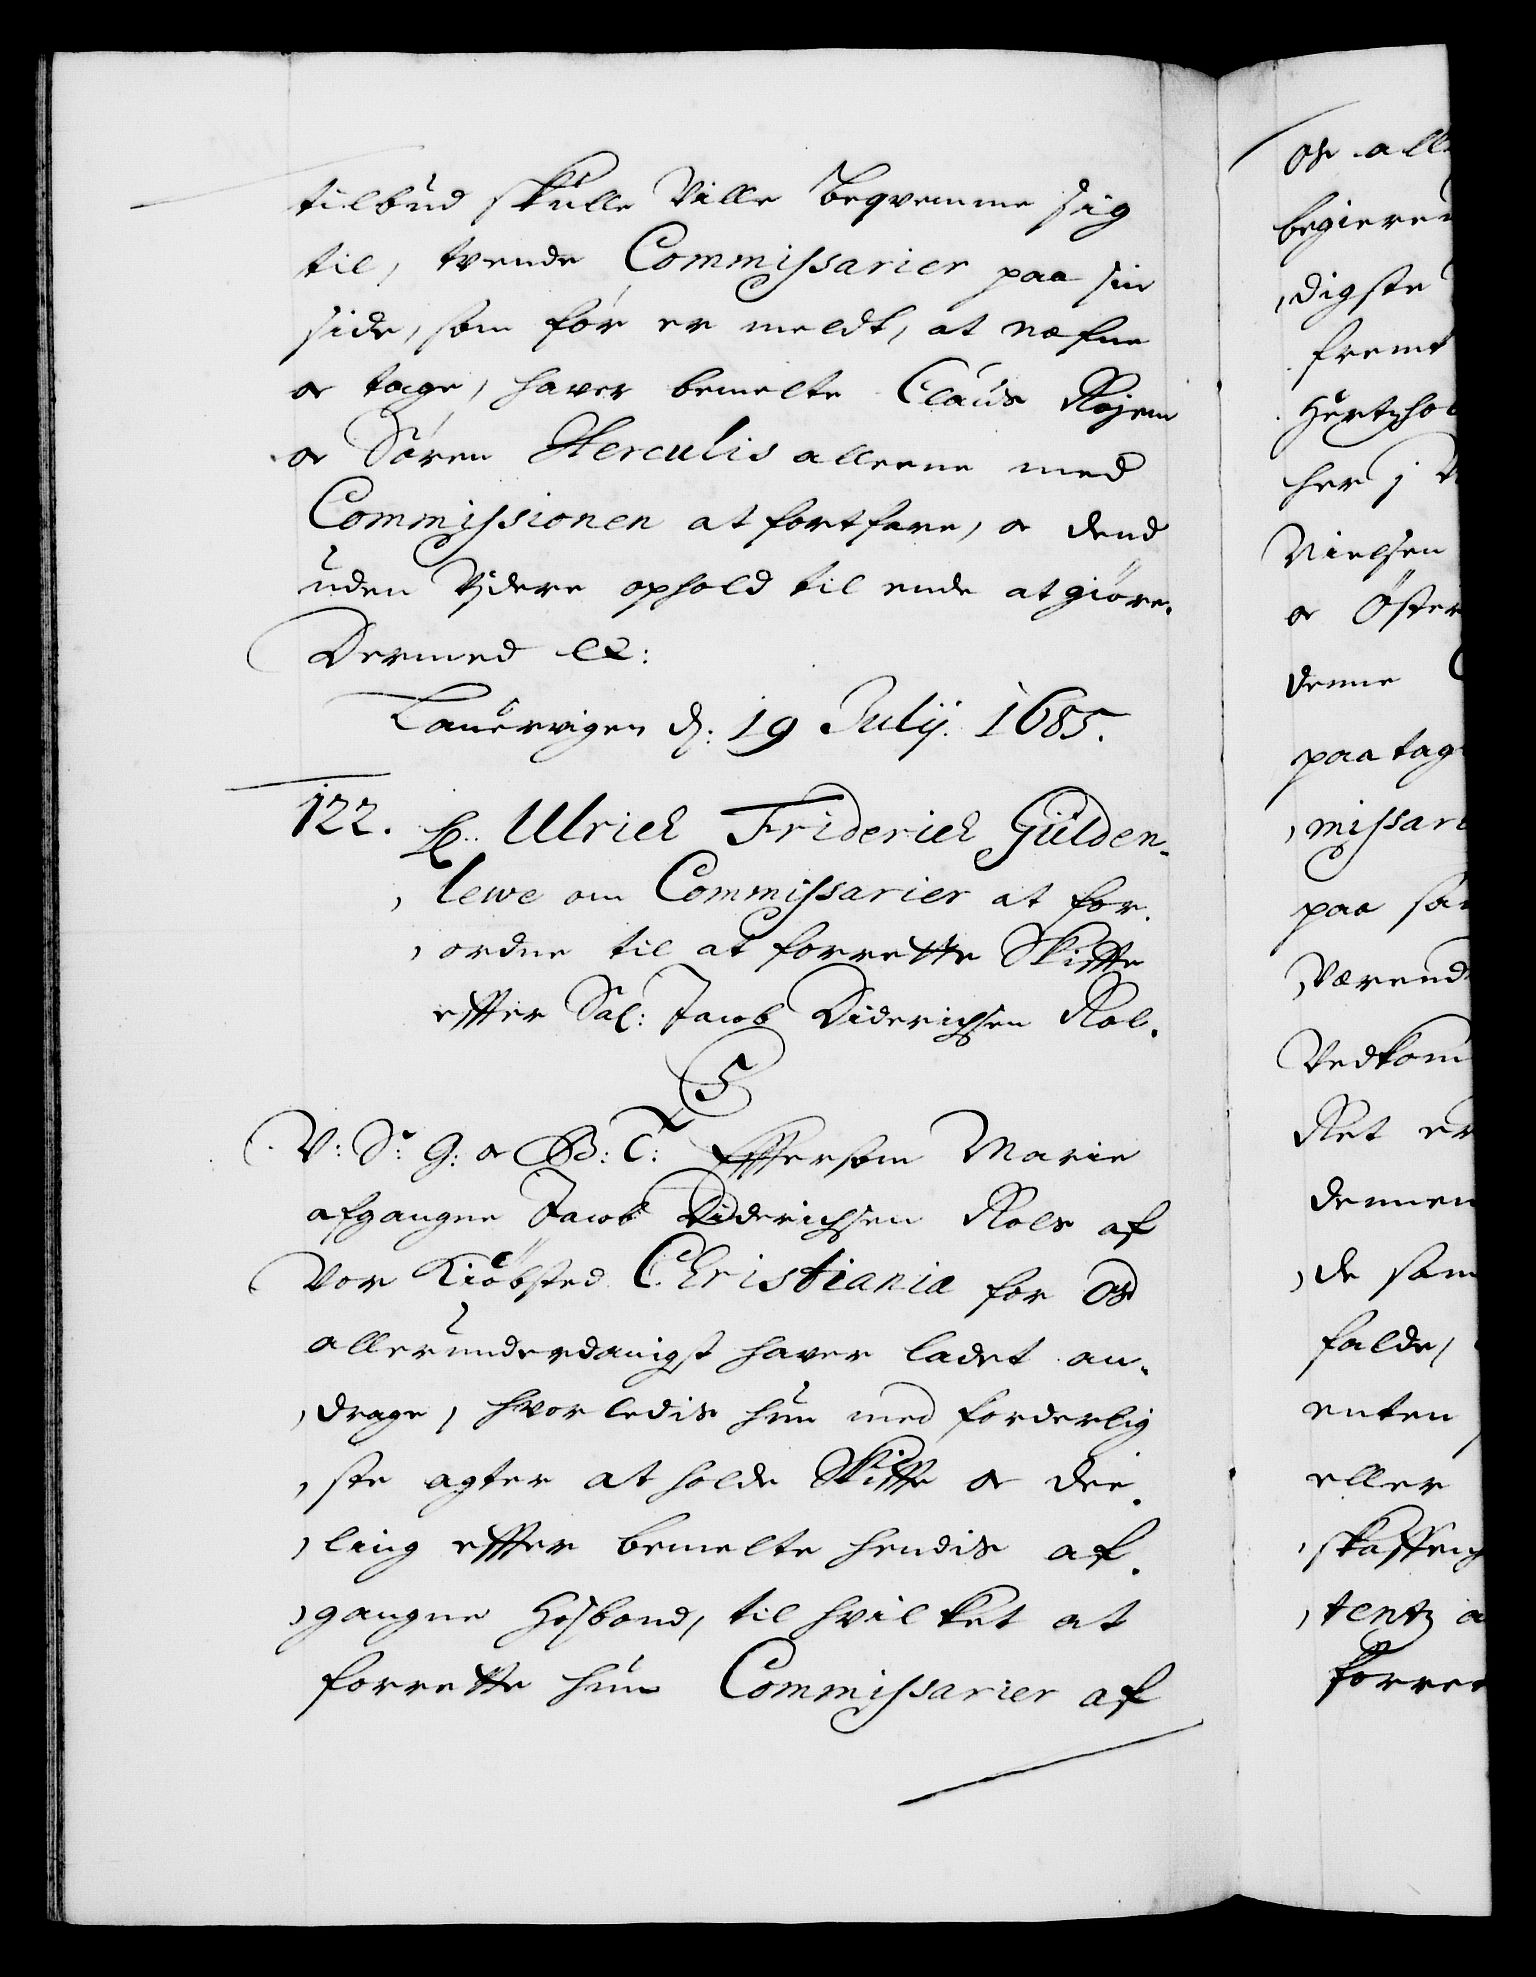 tilbud skulle Ville beqvemme sig
til, tvende Commissarier paa sin
side, som før er meldt, at nefne
oc tage, haver bemelte Claus Røjem
oc Søren Herculis alleene med
Commissionen at fortfare, oc dend
uden Videre ophold til ende at giöre.
Dermed etc:
Laurvigen d: 19 Julij. 1685.
122. Ulrich Friderich Gülden-
lewe om Commissarier at for-
ordne til at forrette Skiffte
effter Sal: Jacob Diderichsen Rol.
C5
V: S: G: oc B: T: Effersom Marie
afgangne Jacob Diderichsen Rols af
Vor Kiöbsted Christiania for Os
allerunderdanigst haver ladet an-
drage, hvorledis hun med forderlig
ste agter at holde Skiffte oc dee-
ling effter bemelte hendis af-
gangne Hosbond, til hvilket at
forrette hun Commissarier af
oc all
begieren
digste
fremt
Hertzho
her j
Nielsen
oc Öster
denne
paatag
missari
paa sa
Værend
Vedkom
Ret er
dennem
de som
falde,
enten
eller
skafftning
tentz a
forre